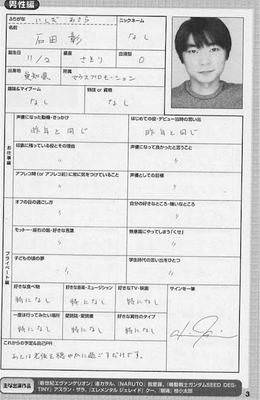 男性編
ふりがな
いしだ あきら
ニックネーム
名前
石田 彰
なし
誕生日
11/2
星座
さそり
血液型
O
出身地
愛知県
所属
マウスプロモーション
趣味&マイブーム
なし
特技 or 資格
なし
お仕事編
声優になった動機・きっかけ
昨年と同じ
はじめての役・デビュー当時の思い出
昨年と同じ
印象に残っている役とその理由
〃
声優になって良かったと思うこと
〃
アフレコ時(or アフレコ前)に常に気をつけていること
〃
声優としての目標
〃
プライベート編
オフの日の過ごし方
〃
自分の好きなところ・嫌いなところ
〃
モットー・座右の銘・好きな言葉
〃
無意識にやってしまう"くせ"
〃
子どもの頃の夢
〃
学生時代の思い出をひとつ
〃
好きな食べ物
特になし
好きな音楽・ミュージシャン
特になし
好きなTV・映画
特になし
サインを一筆
一度は行ってみたい場所
特になし
愛読誌・愛読書
特になし
好きな異性のタイプ
特になし
これからの予定&自己PR
あとは老後を穏やかに過ごすだけです。
主な出演作品
「新世紀エヴァンゲリオン」渚カヲル、「NARUTO」我愛羅、「機動戦士ガンダムSEED DES-
TINY」アスラン・ザラ、「エレメンタル ジェレイド」クー、「銀魂」桂小太郎
3